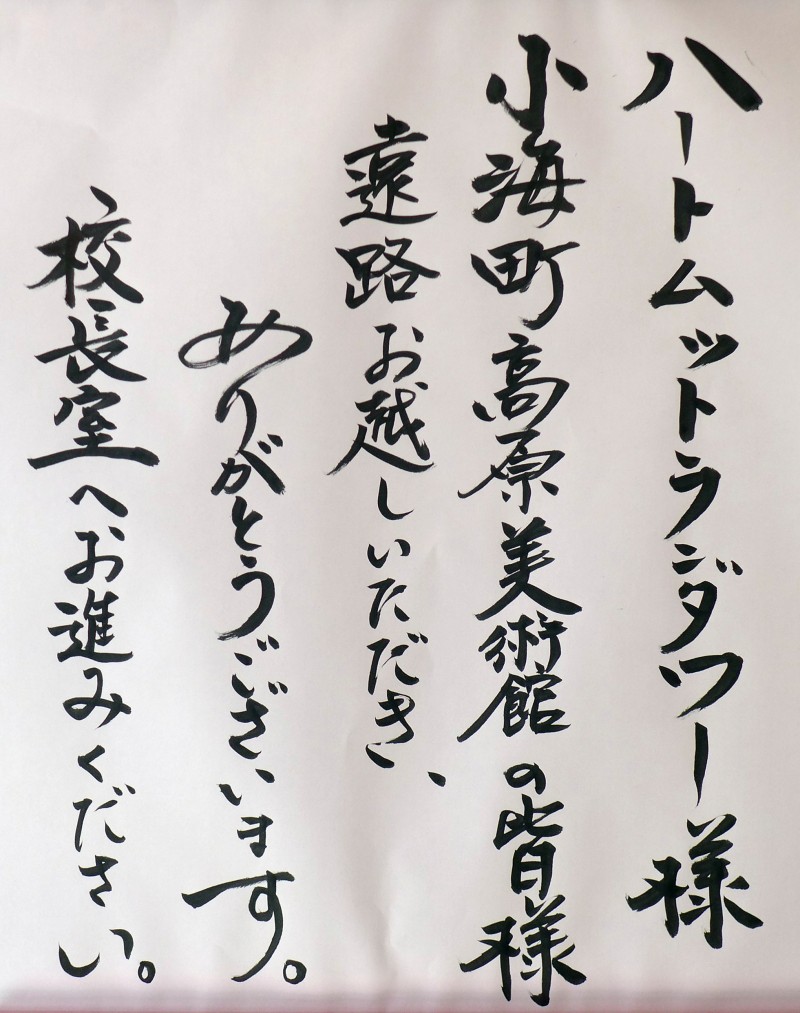 ハートムットランダワー様
小海町高原美術館の皆様
遠路お越しいただき、
ありがとうございます。
校長室へお進みください。